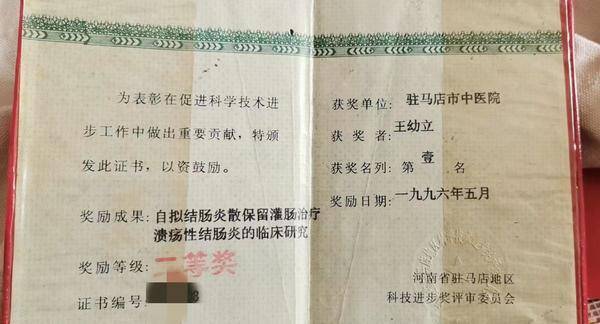 为表彰在促进科学技术进
步工作中做出重要贡献,特颁
发此证书,以资鼓励。
奖励成果:自拟结肠炎散保留灌肠治疗
溃疡性结肠炎的临床研究
奖励等级:二等奖
证书编号:
获奖单位:驻马店市中医院
获奖者:王幼立
获奖名列:第壹名
奖励日期:一九九六年五月
河南省驻马店地区
科技进步奖评审委员会